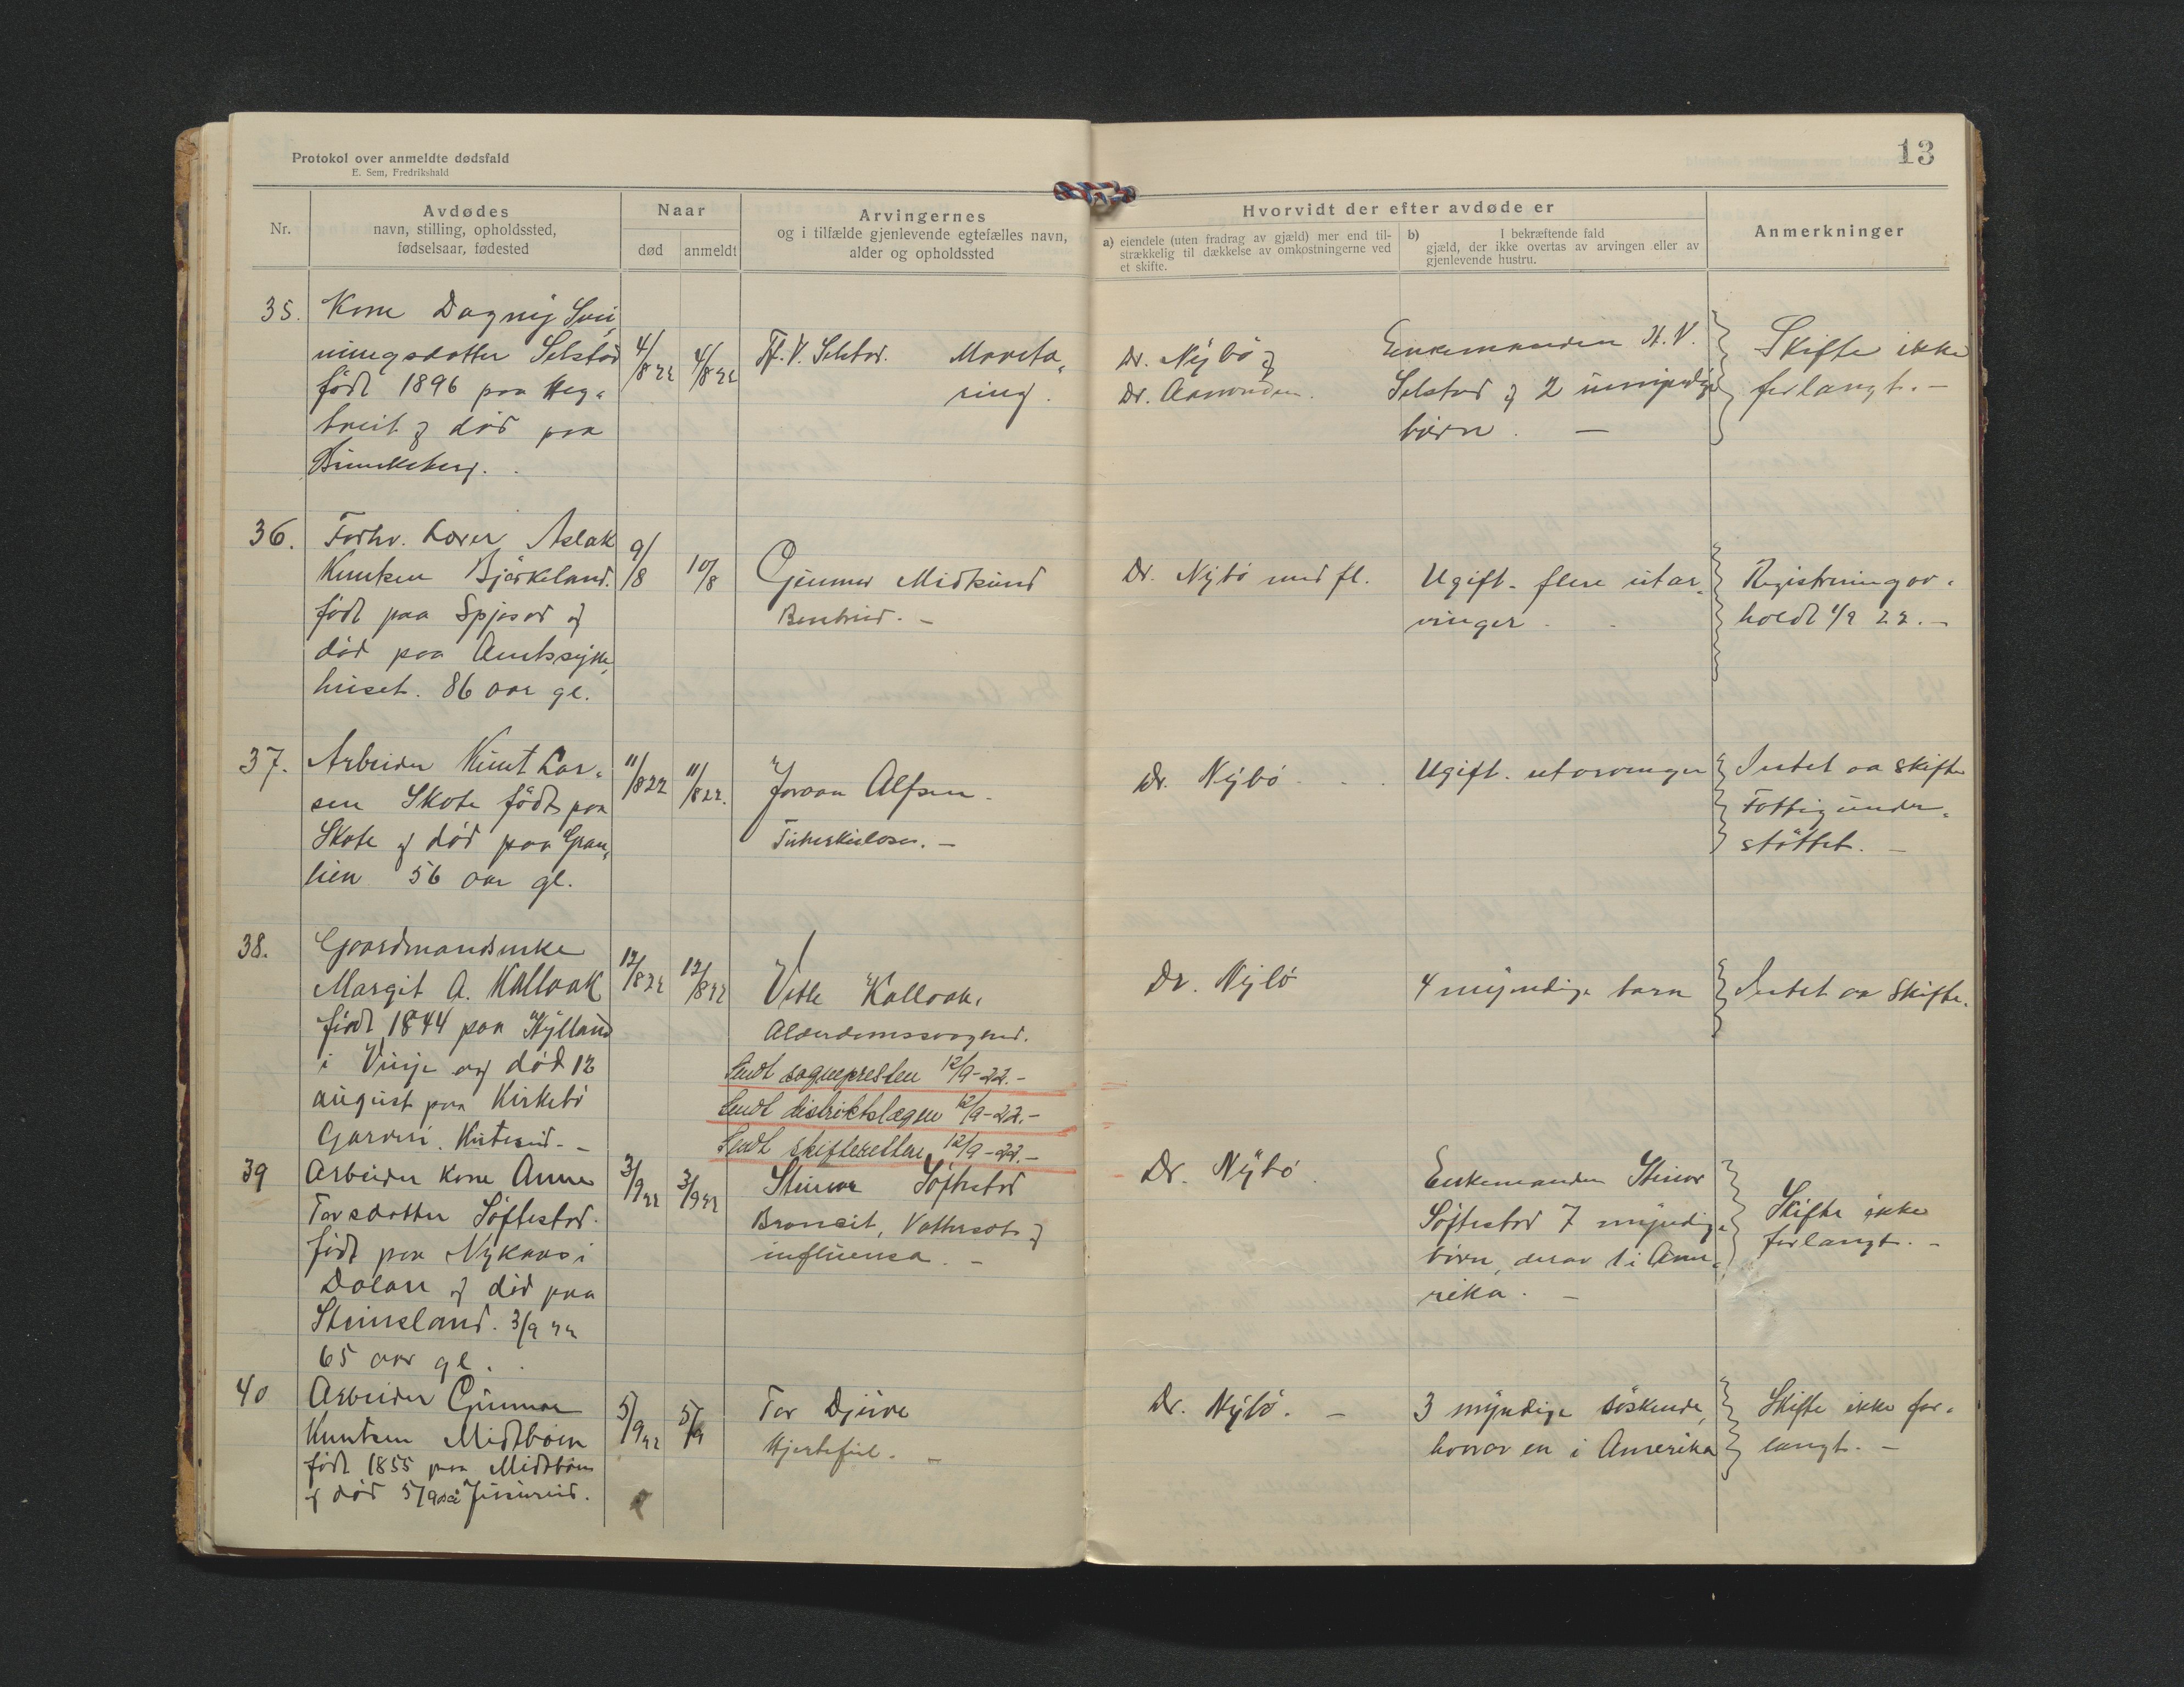 Protokol over anmeldte dødsfald
E. Sem, Fredrikshald
13
Nr.
Avdødes
navn, stilling, opholdssted,
fødselsaar, fødested
Naar
død
anmeldt
Arvingernes
og i tilfælde gjenlevende egtefælles navn,
alder og opholdssted
Hvorvidt der efter avdøde er
a) eiendele (uten fradrag av gjæld) mer end til-
strækkelig til dækkelse av omkostningerne ved
et skifte.
b) I bekræftende fald
gjæld, der ikke overtas av arvingen eller av
gjenlevende hustru.
Anmerkninger
35.
Kone Dagny
ningsdatter Selstad
født 1896 paa
og død paa
4/8 22
4/8 22
H. V. Selstad.
Dr. Nybö og
Dr. Aamundsen.
Enkemanden H. V.
Selstad og 2 umyndige
børn. —
Skifte ikke
forlangt. —
36.
Forhv. Lærer Aslak
Knutsen Bjørkeland.
født paa Spjosod og
død paa Amtssyke
huset. 86 aar gl.
9/8
10/8
Gunnar Midtsund
Dr. Nybö med fl.
Ugift. flere utar
vinger.
Registrering av
holdt 1/9 22. —
37.
Arbeider Knut Lar
sen Skote født paa
Skote og død paa Gran
lien 56 aar gl.
11/8 22
11/8 22.
Joraan Alfsen.
Tuberkulose. —
Dr. Nybö
Ugift. utarvinger
Intet aa skifte
Fattigunder
støttet. —
38.
Gaardmandsenke
Margit A. Kallaak
født 1844 paa Nylland
i Vinje og død 12
august paa Kirkebö
Garveri. Kviteseid. —
12/8 22
12/8 22
Vetle Kallaak.
Alderdomssvaghed.
Sendt sognepresten 12/9-22.-
Sendt distriktslægen 12/9-22.-
Sendt skifteretten 12/9-22.-
Dr. Nybö
4 myndige barn
Intet aa skifte.
39
Arbeider kone Anne
Tarsdatter Söftestad.
født paa Nykaas i
Dalan og död paa
Steinsland. 3/9 22
65 aar gl.
3/9 22
3/9 22
Steinar Söftestad
Broncit, Vattersot og
influensa. —
Dr. Nybö
Enkemanden Steinar
Söftestad 7 myndige
börn, derav 1 i Ame
rika. —
Skifte ikke
forlangt. —
40
Arbeider Gunnar
Knutsen Midtboen
født 1855 paa Midtboen
og död 5/9
5/9 22
5/9
Tor Djuve
Hjertefeil. —
Dr. Nybö. —
3 myndige söskende,
hvorav en i Amerika
Skifte ikke for
langt. —